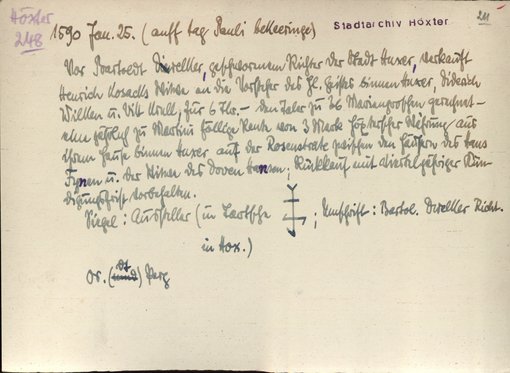 Höxter
248
1590 Jan. 25. (auff tag Pauli bekeeringe)
Stadtarchiv Höxter
211
Vor Bartoldt Duvelker, geschworenem Richter der Stadt Huxer, verkauft
Henrich Kosacks Witwe an die Vorsteher des Hl. Geistes binnen Huxer, Diderich
Wilken u. Vitt Knoll, für 6 Thr. – den Taler zu 36 Mariengroschen gerechnet –
eine jährlich zu Martini fällige Rente von 3 Mark Höxterscher Währung aus
ihrem Hause binnen Huxer auf der Rosenstrate zwischen den Häusern des Hans
Fynen u. der Witwe des Doven Hansen; Rückkauf mit vierteljähriger Kün-
digungsfrist vorbehalten.
Siegel: Aussteller (in Tartsche ; Umschrift: Bartol. Duvelker Richt.
in Hox.)
Or. (dt) Perg